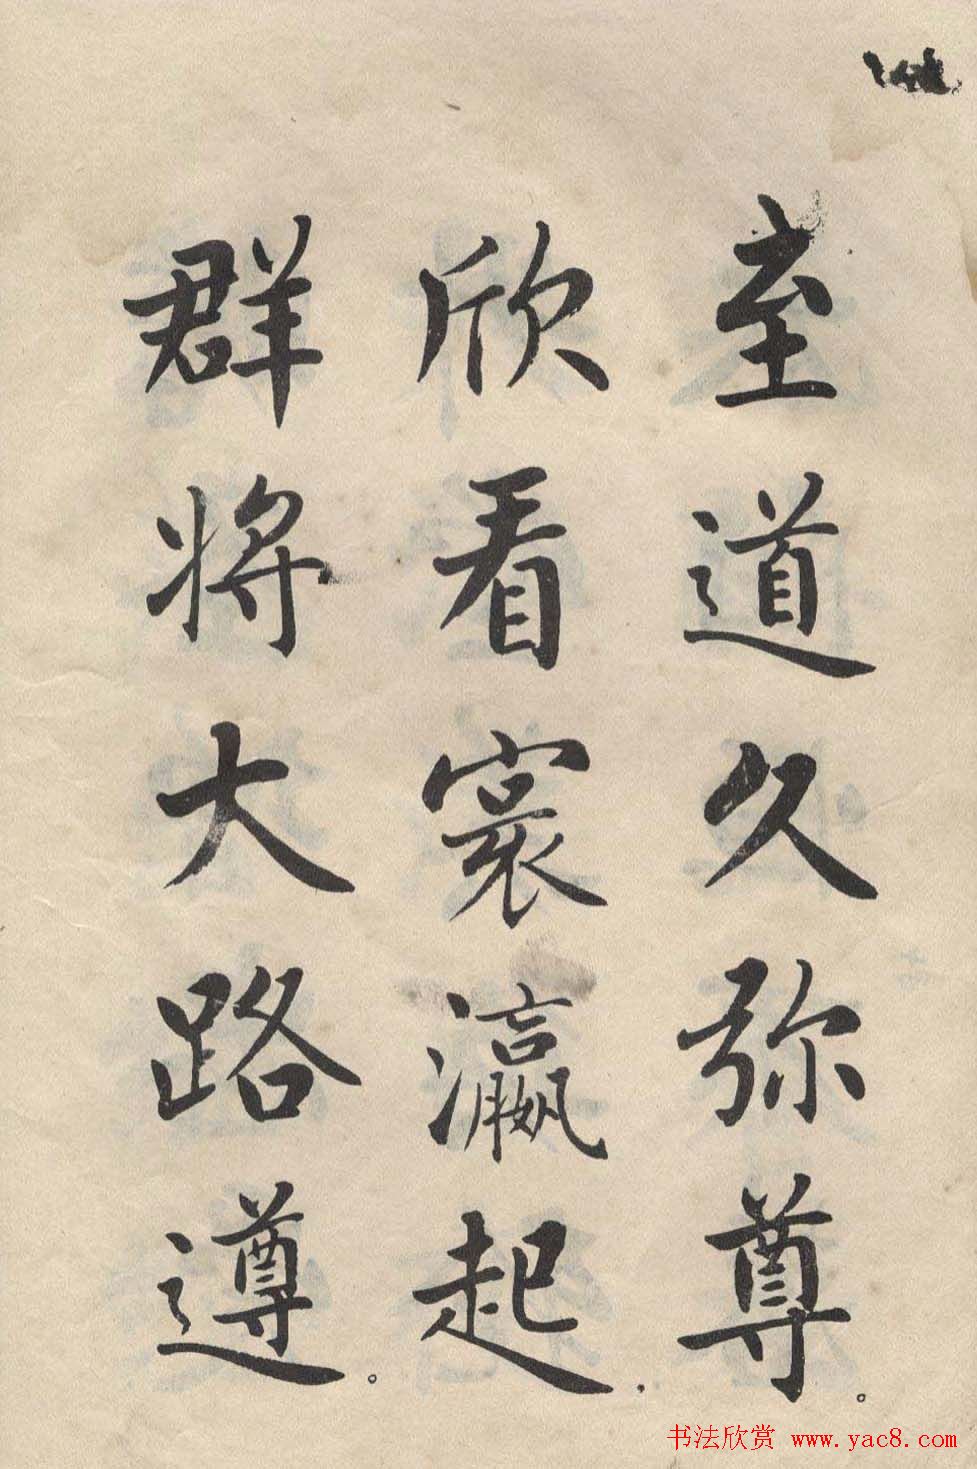 至道久弥尊。
欣看寰瀛起，
群将大路遵。
书法欣赏 www.yac8.com